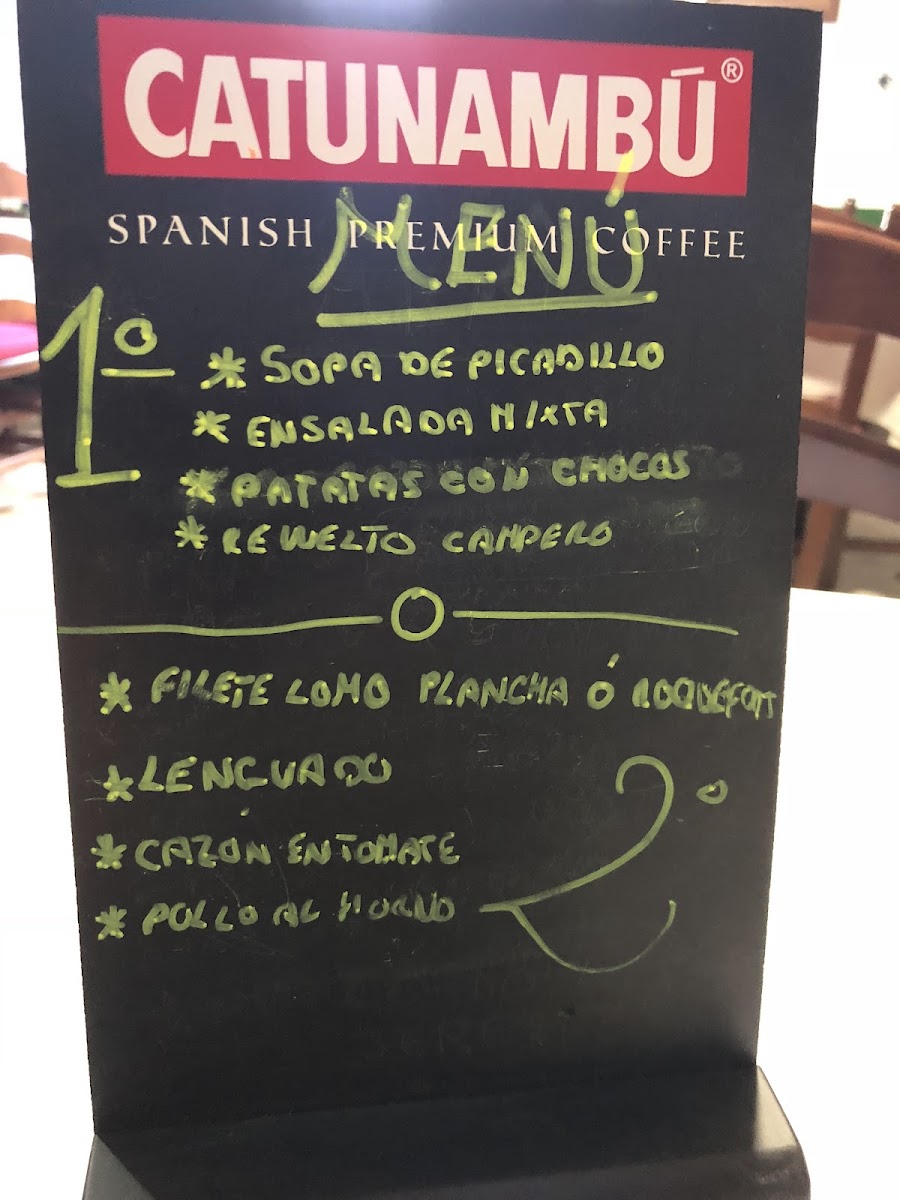 CATUNAMBÚ®
SPANISH PREMIUM COFFEE
MENÚ
1º
* SOPA DE PICADILLO
* ENSALADA MIXTA
* PATATAS CON CHOCOS
* REVUELTO CAMPERO
* FILETE LOMO PLANCHA Ó ROQUEFORT
* LENGUADO
2º
* CAZÓN EN TOMATE
* POLLO AL HORNO